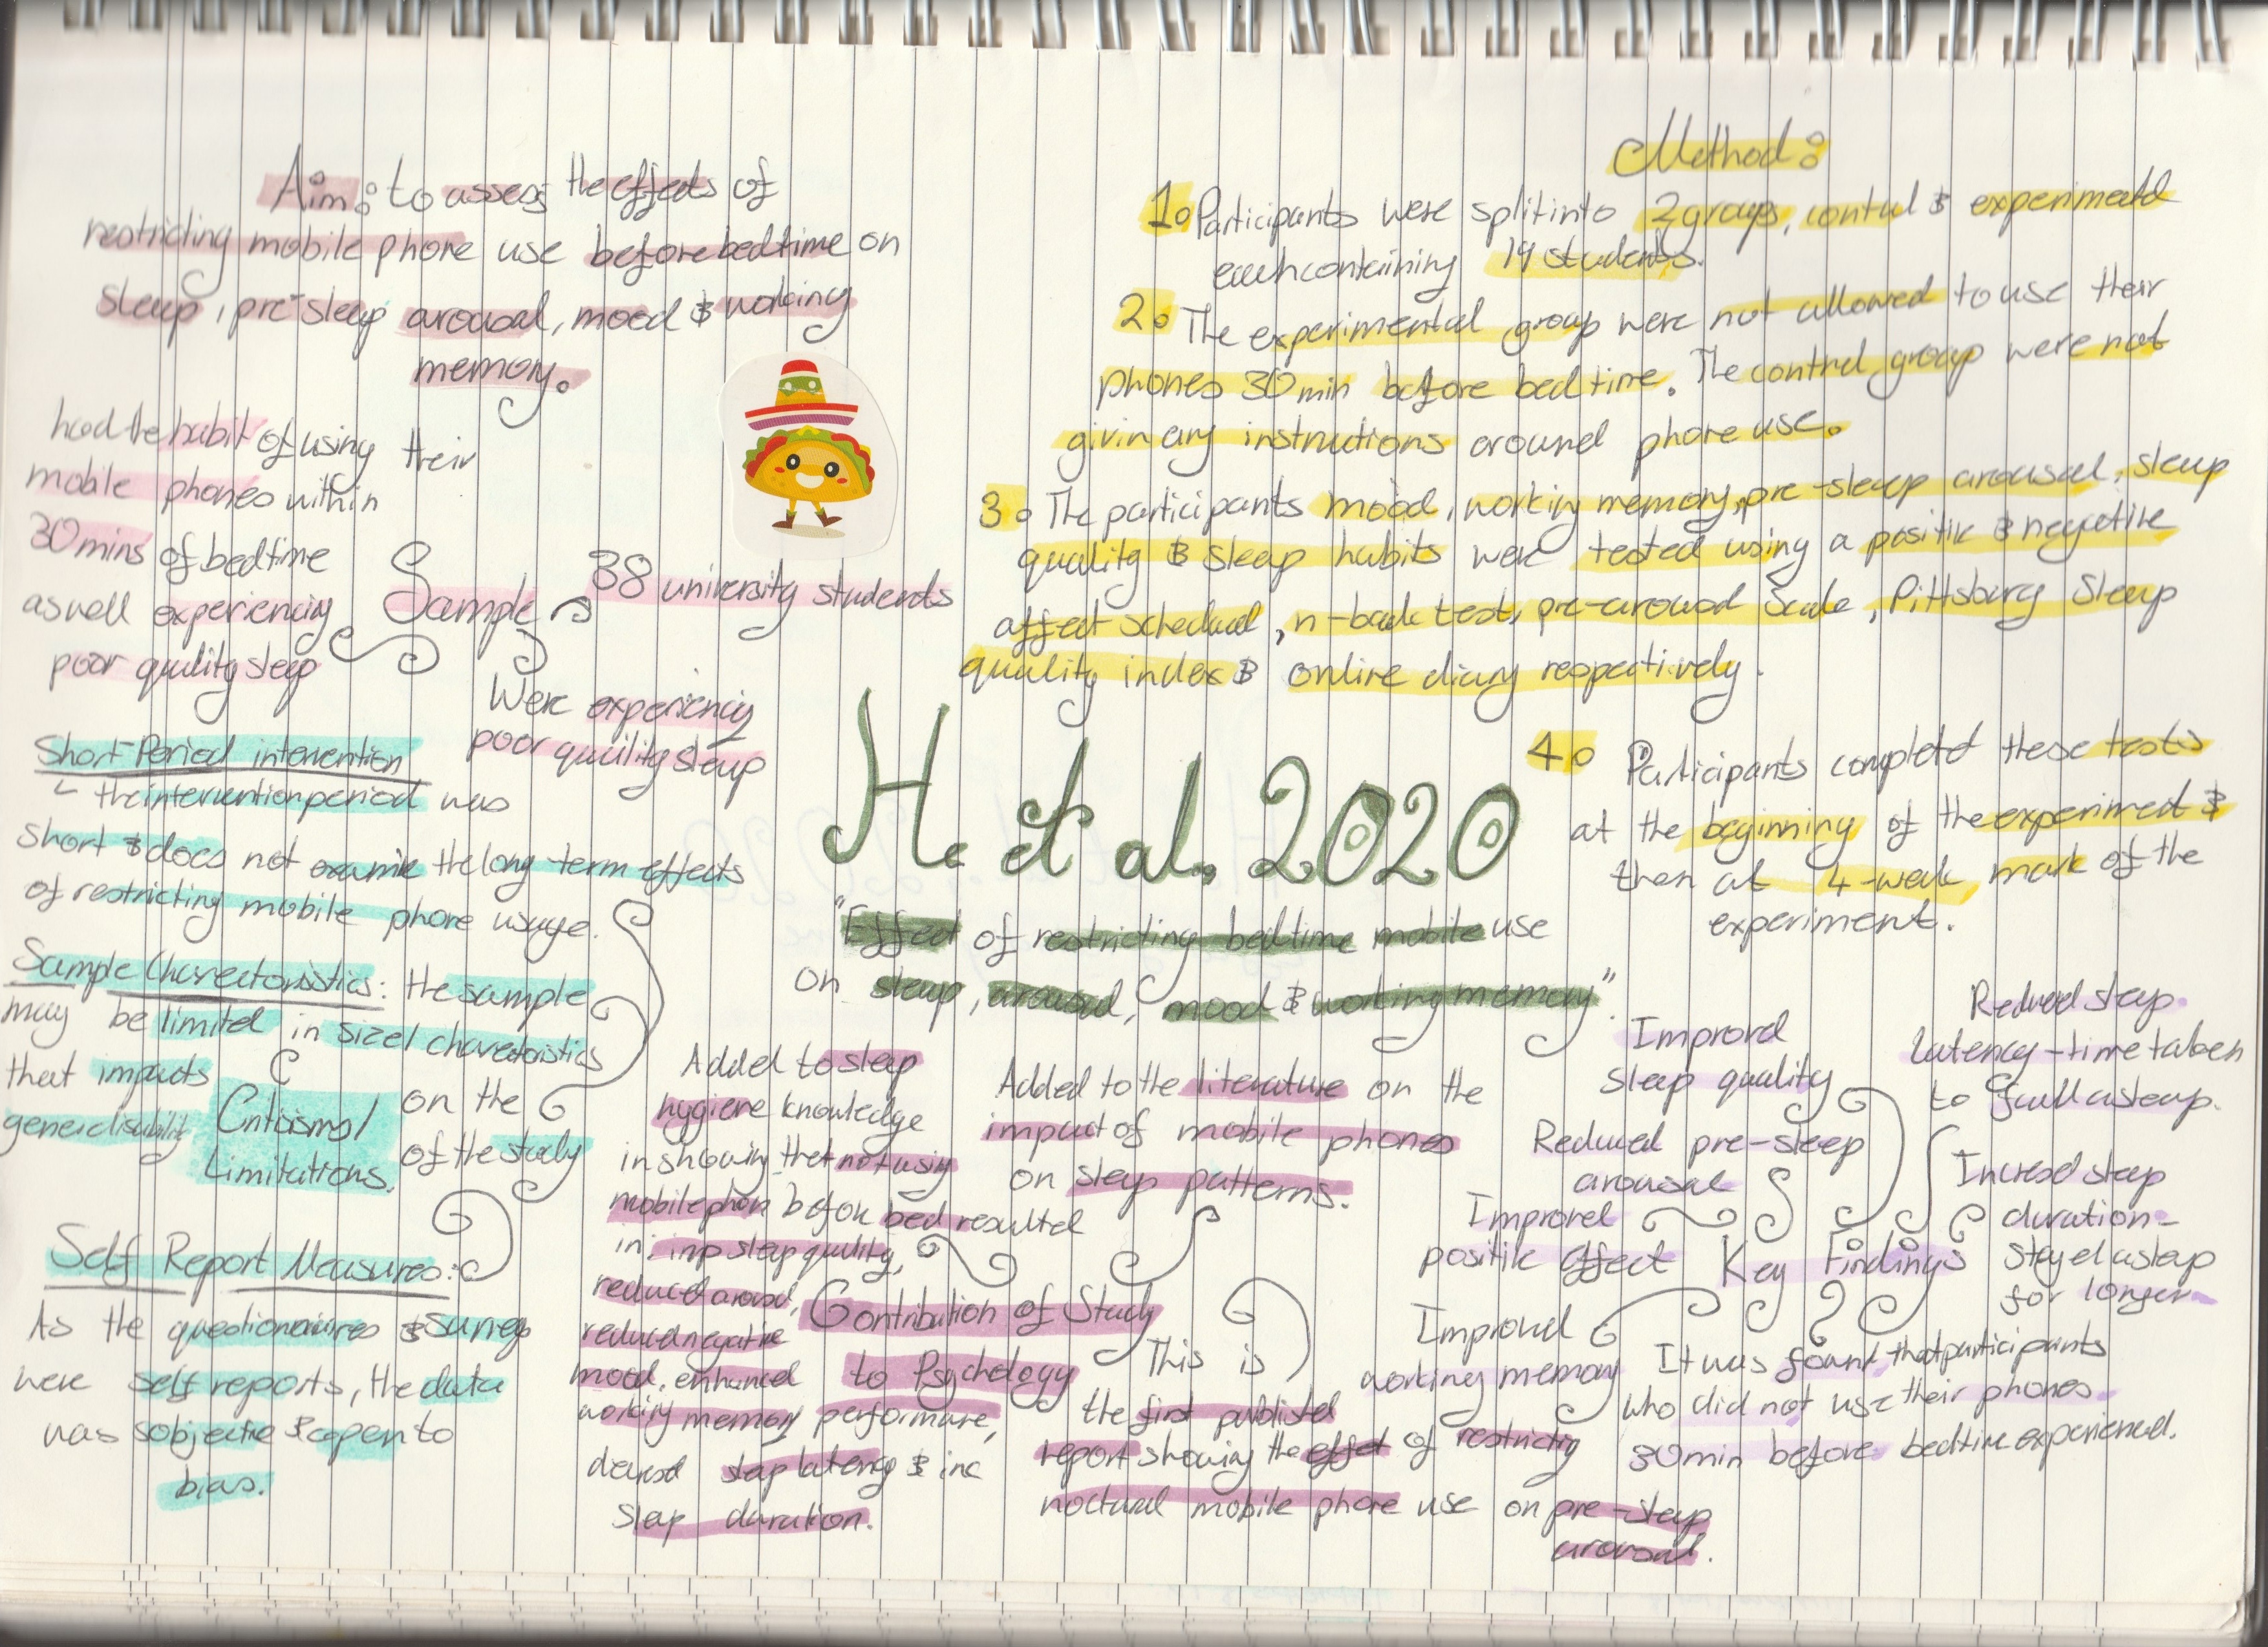 Aim: to assess the effects of
restricting mobile phone use before bedtime on
sleep, pre-sleep arousal, mood & working
memory.
had the habit of using their
mobile phones within
30mins of bedtime
aswell experiencing
poor quality sleep
Sample
38 university students
Were experiencing
poor quality sleep
Method:
1. Participants were split into 2 groups, control & experimental
each containing 19 students.
2. The experimental group were not allowed to use their
phones 30min before bedtime. The control group were not
givin any instructions around phone use.
3. The participants mood, working memory, pre-sleep arousal, sleep
quality & sleep habits were tested using a positive & negative
affect schedual, n-back test, pre-arousal Scale, Pittsburg Sleep
quality index & online diary respectively.
4. Participants completed these tests
at the beginning of the experiment &
then at 4-week mark of the
experiment.
He et al., 2020
"Effect of restricting bedtime mobile use
on sleep, arousal, mood & working memory".
Short-Period intervention
the intervention period was
short & does not examine the long term effects
of restricting mobile phone usage.
Sample Charectoristics: the sample
may be limited in size/charectoristics
that impacts
generalisability
on the
of the study
Criticisms/
Limitations.
Self Report Measures:
As the questionaires & survey
were self reports, the data
was sobjective & open to
bias.
Added to sleep
hygiene knowledge
in showing that not using
mobile phone before bed resulted
in: imp sleep quality,
reduced arousal,
reduced negative
mood, enhanced
working memory performance,
decresed sleep latency & inc
sleep duration.
Added to the literature on the
impact of mobile phones
on sleep patterns.
Contribution of Study
to Psychology
This is
the first published
report showing the effect of restricting
noctural mobile phone use on pre-sleep
arousal.
Improved
sleep quality
Reduced sleep
latency - time taken
to fall asleep.
Reduced pre-sleep
arousal
Improved
positive affect
Key Findings
Incresed sleep
duration -
stayed asleep
for longer
Improved
working memory
It was found that participants
who did not use their phones
30min before bedtime experienced.